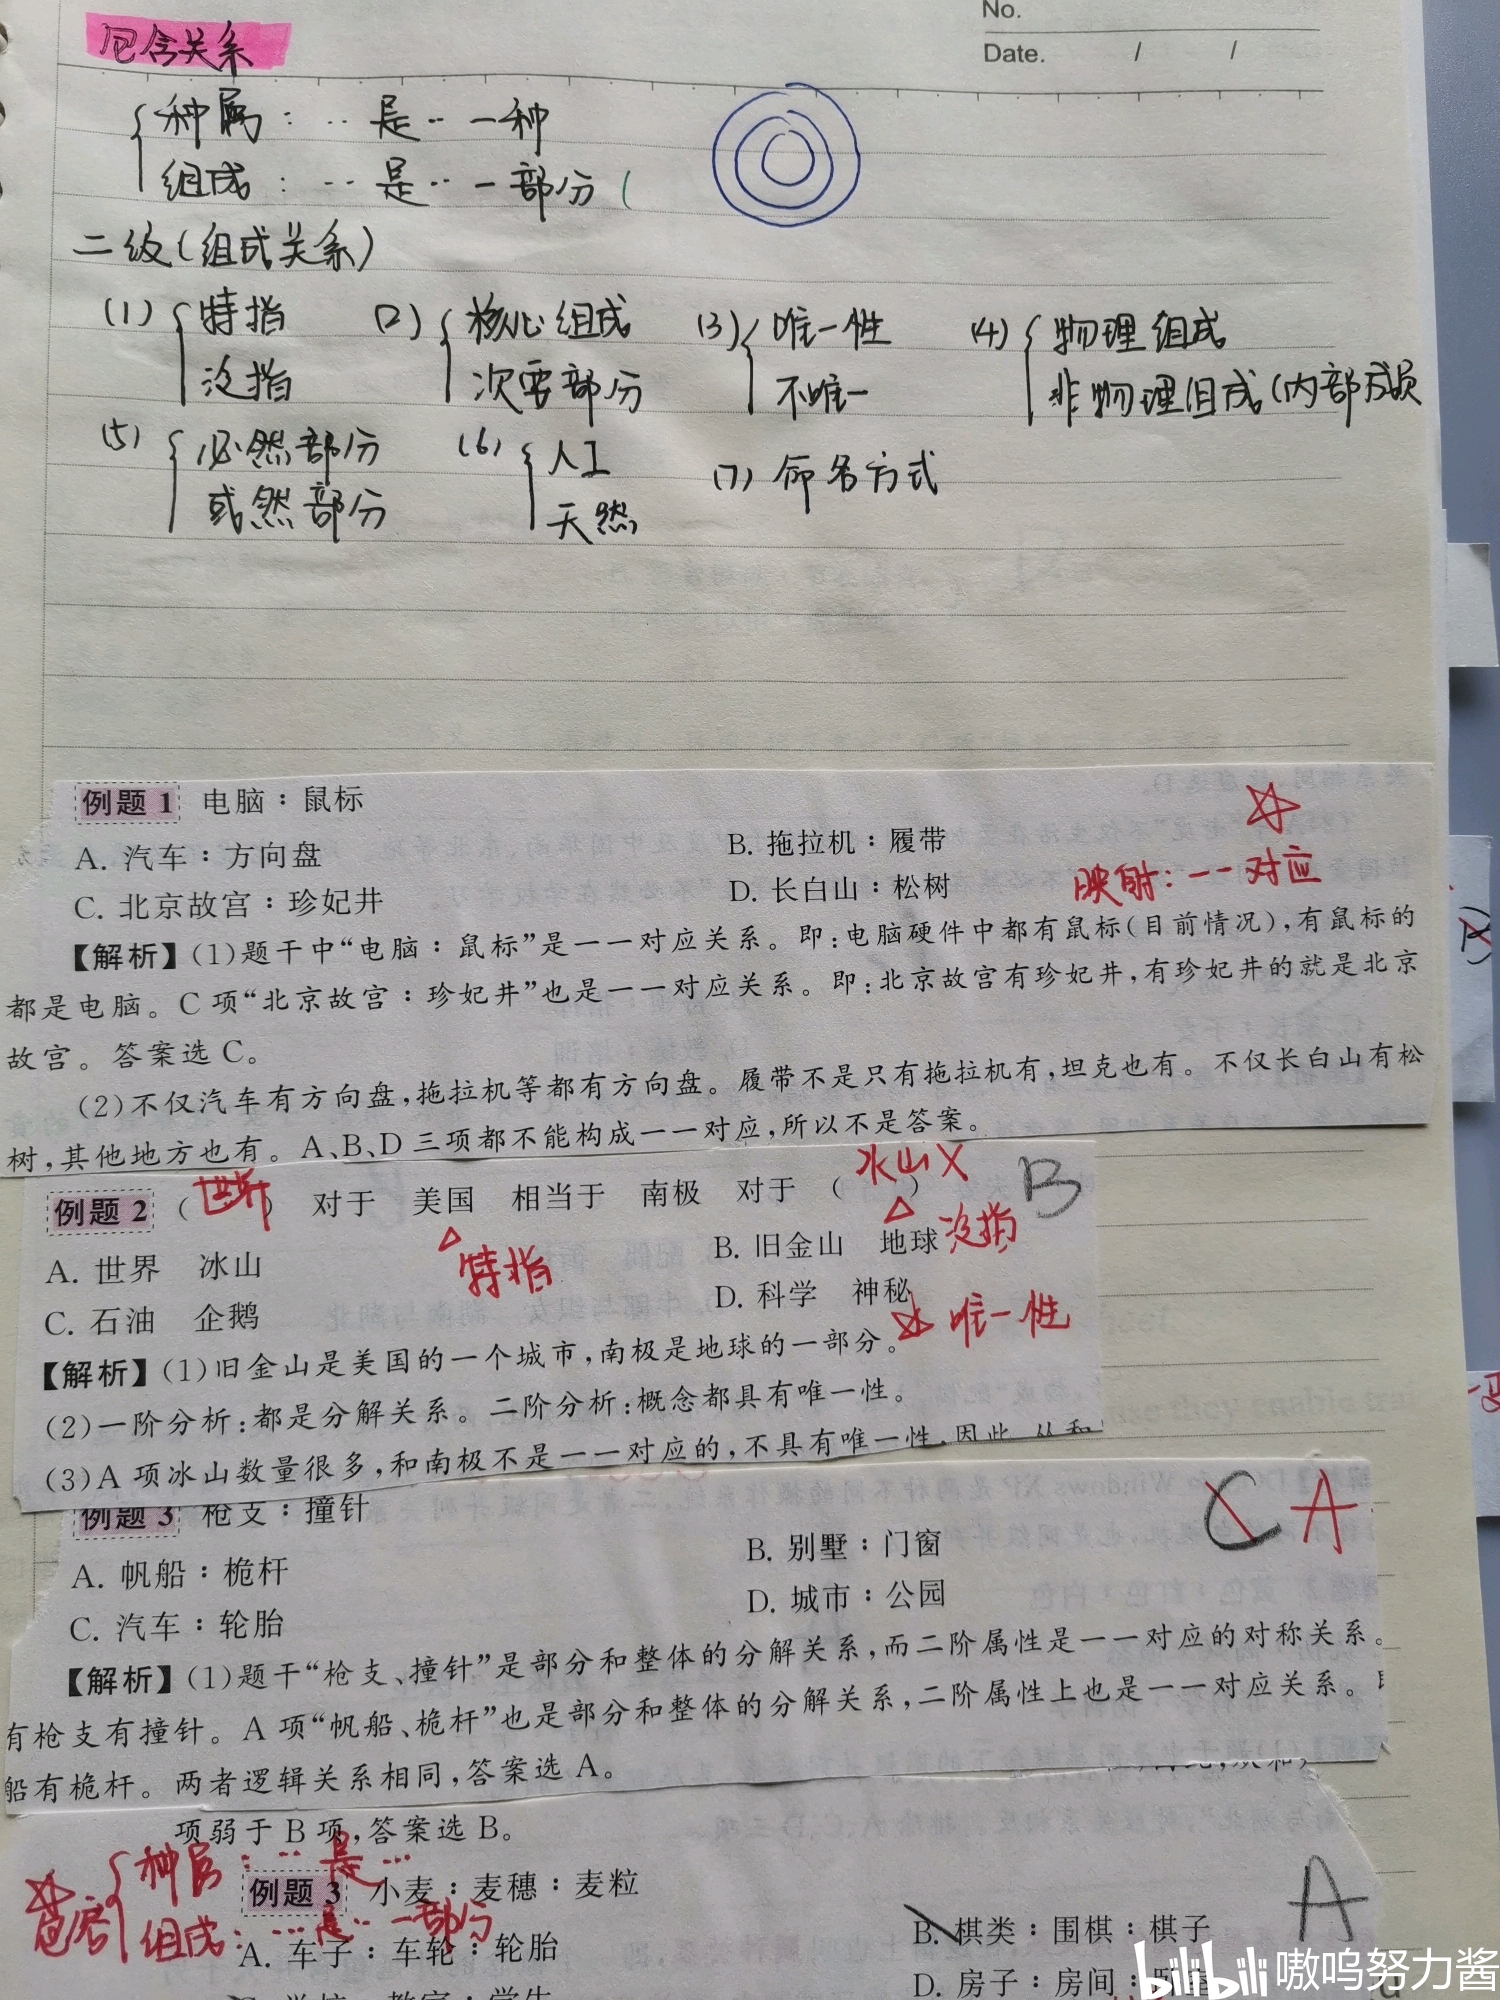 No.
Date. / /
包含关系
种属：‥是‥一种
组成：‥是‥一部分（
二级（组成关系）
(1) 特指 (2) 核心组成 (3) 唯一性 (4) 物理组成
没指 次要部分 不唯一 非物理组成（内部成员
(5) 必然部分 (6) 人工 (7) 命名方式
或然部分 天然
例题1 电脑：鼠标
A. 汽车：方向盘 B. 拖拉机：履带
C. 北京故宫：珍妃井 D. 长白山：松树
映射：一一对应
【解析】(1)题干中“电脑：鼠标”是一一对应关系。即：电脑硬件中都有鼠标(目前情况)，有鼠标的
都是电脑。C项“北京故宫：珍妃井”也是一一对应关系。即：北京故宫有珍妃井，有珍妃井的就是北京
故宫。答案选C。
(2)不仅汽车有方向盘，拖拉机等都有方向盘。履带不是只有拖拉机有，坦克也有。不仅长白山有松
树，其他地方也有。A、B、D三项都不能构成一一对应，所以不是答案。
冰山X
例题2 （ ） 对于 美国 相当于 南极 对于 （ ） B
特指 没指
A. 世界 冰山 B. 旧金山 地球
C. 石油 企鹅 D. 科学 神秘
唯一性
【解析】(1)旧金山是美国的一个城市，南极是地球的一部分。
(2)一阶分析：都是分解关系。二阶分析：概念都具有唯一性。
(3)A项冰山数量很多，和南极不是一一对应的，不具有唯一性，因此，从和
例题3 枪支：撞针 C A
A. 帆船：桅杆 B. 别墅：门窗
C. 汽车：轮胎 D. 城市：公园
【解析】(1)题干“枪支、撞针”是部分和整体的分解关系，而二阶属性是一一对应的对称关系。
有枪支有撞针。A项“帆船、桅杆”也是部分和整体的分解关系，二阶属性上也是一一对应关系。
船有桅杆。两者逻辑关系相同，答案选A。
项弱于B项，答案选B。
种属：…是…
组成：…是‥一部分
例题3 小麦：麦穗：麦粒 A
A. 车子：车轮：轮胎 B. 棋类：围棋：棋子
D. 房子：房间：
bilibili 嗷呜努力酱